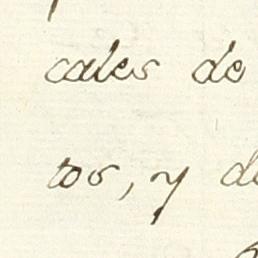 cales de
tos, y de